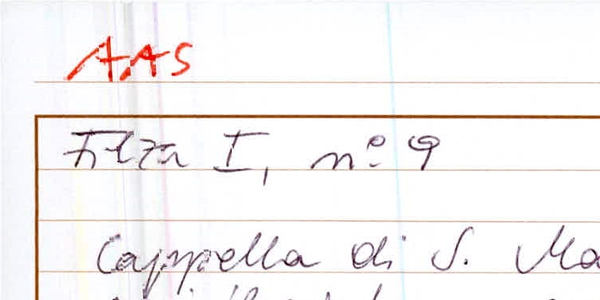 AAS
Filza I, n° 9
Cappella di S. Ma